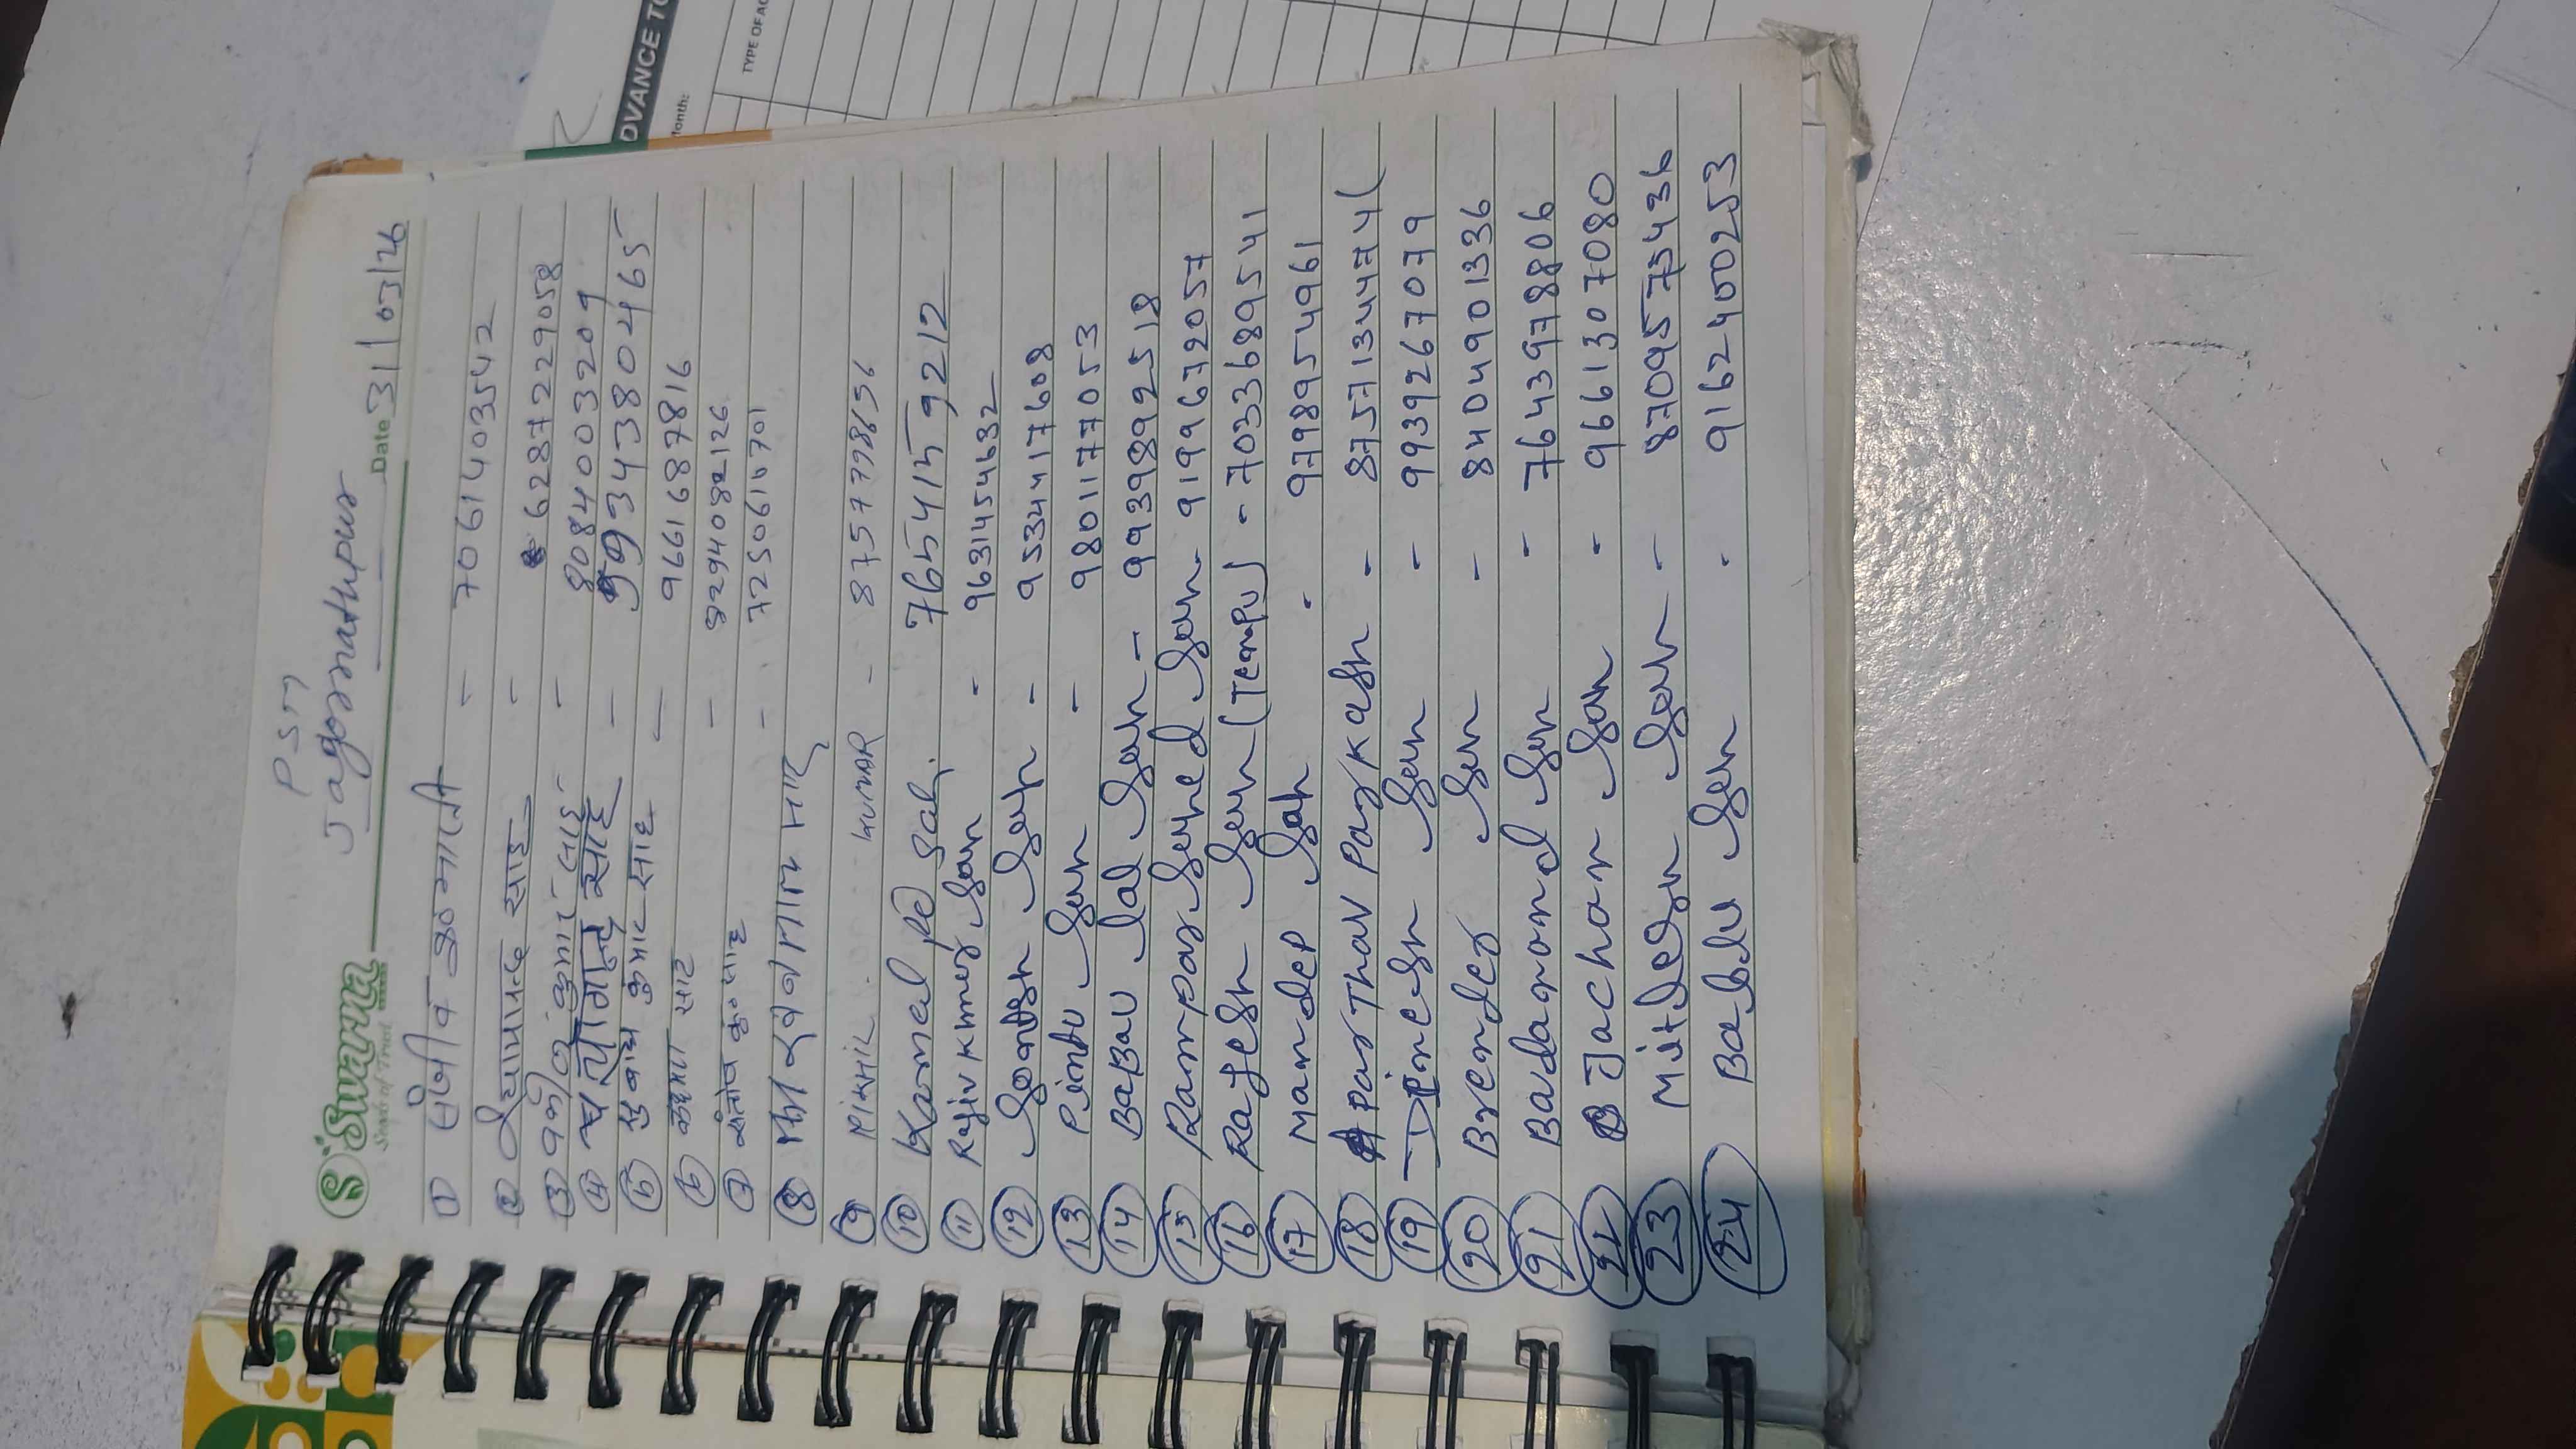 PSM
Jagarnathpur
Swarna
Seeds of Trust
Date 31/03/26
① संजीव कु० भारती - 7061403542
② विद्यापति साह - 6287229058
③ कुमार साह - 8084003209
④ सत्येन्द्र साह - 9934380465
⑤ सुबोध कुमार साह - 9661687816
⑥ साह - 8294082126
⑦ संतोष कु० साह - 7250610701
⑧ साह
⑨ NIKHIL KUMAR - 8757798656
⑩ Kamal pd Sah. 7654159212
⑪ Rajiv Kumar Sah - 9631454632
⑫ Santosh Sah - 9534417608
⑬ Pintu Sah - 9801177053
⑭ BaBau Lal Sah - 9939892518
⑮ Rampar Sah - 9199672057
⑯ Rajesh Sah (Tempu) - 7033689541
⑰ Mandep Sah - 9798954961
⑱ ParThav Parkash - 8757134474(
⑲ Dinesh Sah - 9939267079
⑳ Brender Sah - 8404901336
㉑ Badanand Sah - 7643978806
㉒ Jachan Sah - 9661307080
㉓ Mitlesh Sah - 8709573436
㉔ Bablu Sah - 9162400253
DVANCE TO
Month:
TYPE OF AC